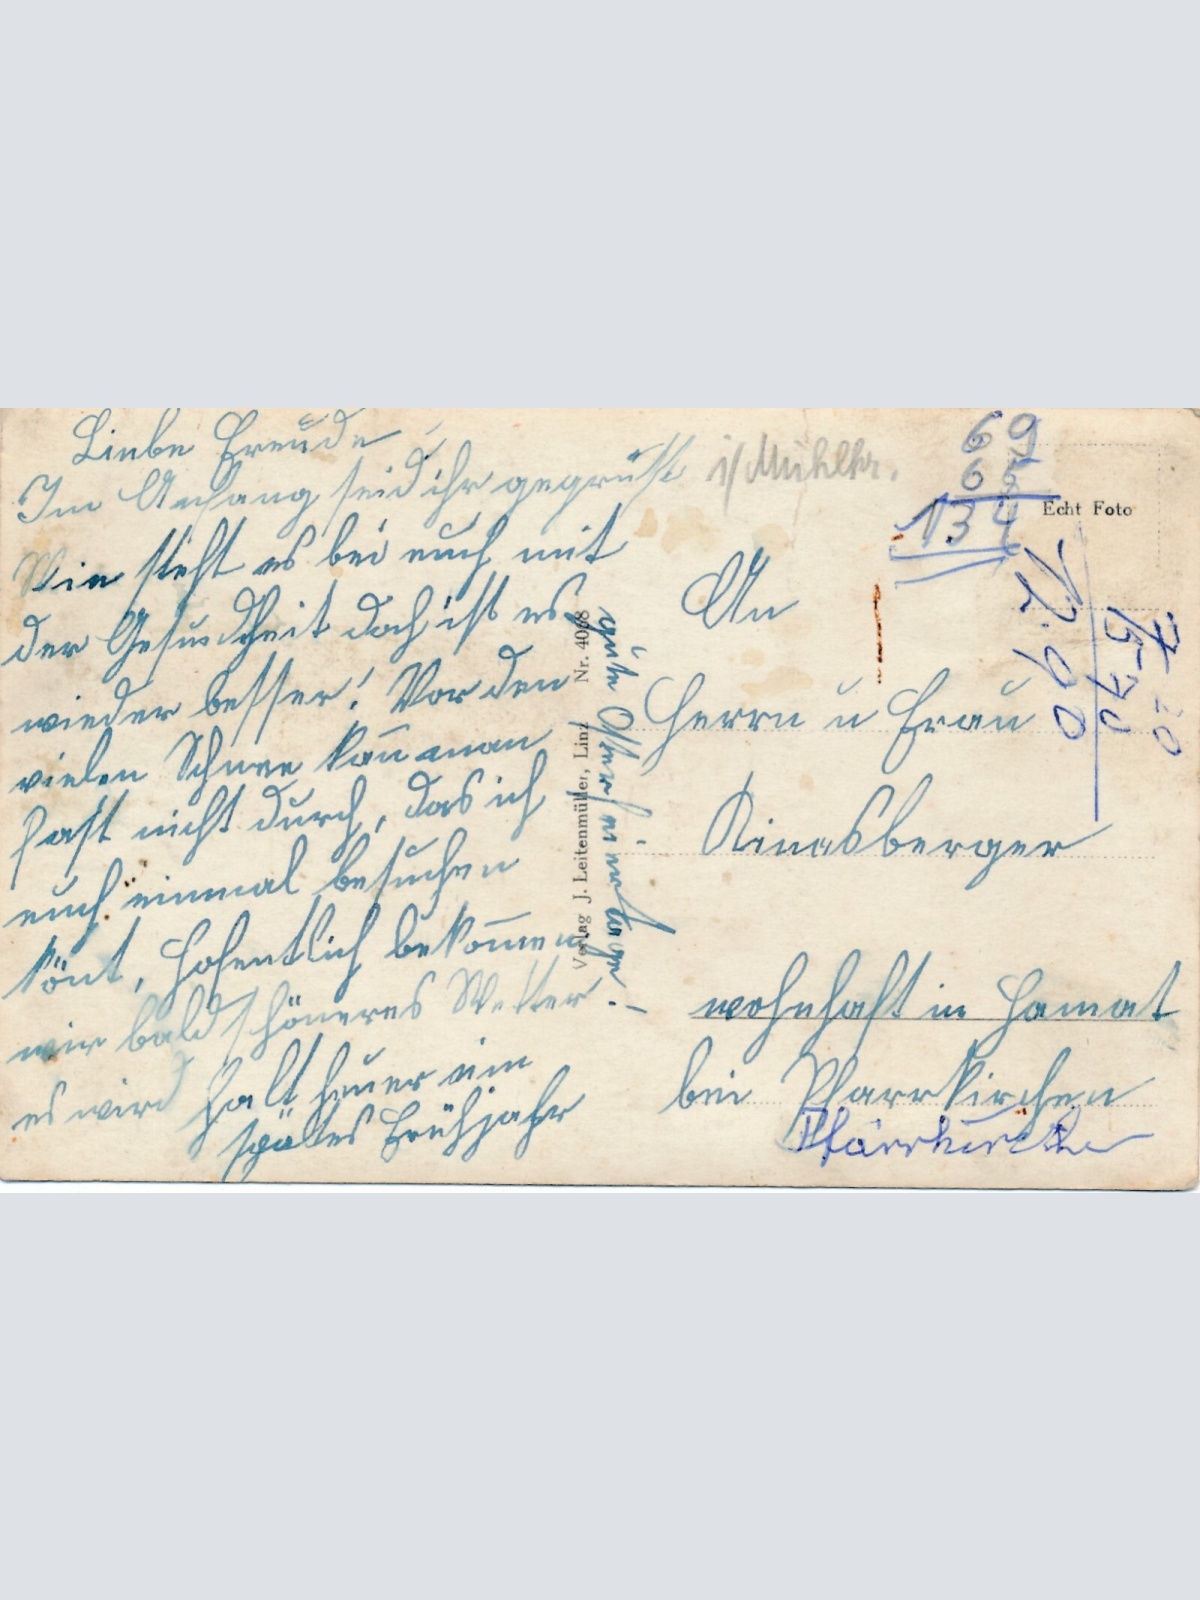 Liebe Freude
Im Anfang seid ihr gegrüßt
Wie steht es bei euch mit
der Gesundheit doch ist es
wieder besser! Vor den
vielen Schnee kañ man
fast nicht durch, das ich
euch einmal besuchen
könt, hofentlich bekom̄en
wir bald schöneres Wetter
es wird halt heuer ein
spätes Frühjahr
gute Osterfeiertage. –
Verlag J. Leitenmüller, Linz Nr. 4068
i/Mühlkr.
69
65
134
Echt Foto
12.90
15 70
7 20
An
Herrn u Frau
wohnhaft in
bei Pfarrkirchen
Pfarrkirchen